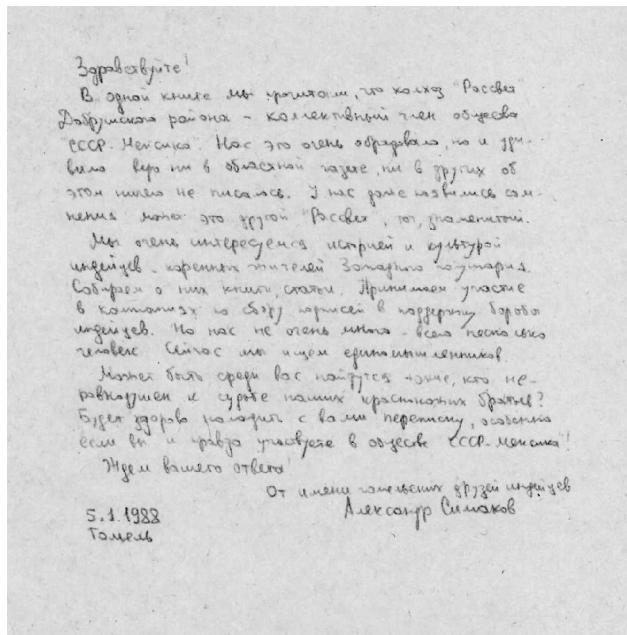 Здравствуйте!
В одной книге мы прочитали, что колхоз "Рассвет"
Добрушского района - коллективный член общества
"СССР-Мексика". Нас это очень обрадовало, но и уди-
вило ведь ни в областной газете, ни в других об
этом ничего не писалось. У нас даже появились сом-
нения может это другой "Рассвет", тот, знаменитый.
Мы очень интересуемся историей и культурой
индейцев - коренных жителей Западного полушария.
Собираем о них книги, статьи. Принимаем участие
в кампаниях по сбору подписей в поддержку борьбы
индейцев. Но нас не очень много - всего несколько
человек. Сейчас мы ищем единомышленников.
Может быть среди вас найдутся такие, кто не-
равнодушен к судьбе наших краснокожих братьев?
Будет здорово наладить с вами переписку, особенно
если вы и правда участвуете в обществе "СССР-Мексика"!
Ждем вашего ответа!
От имени гомельских друзей индейцев
Александр Симаков
5.1.1988
Гомель